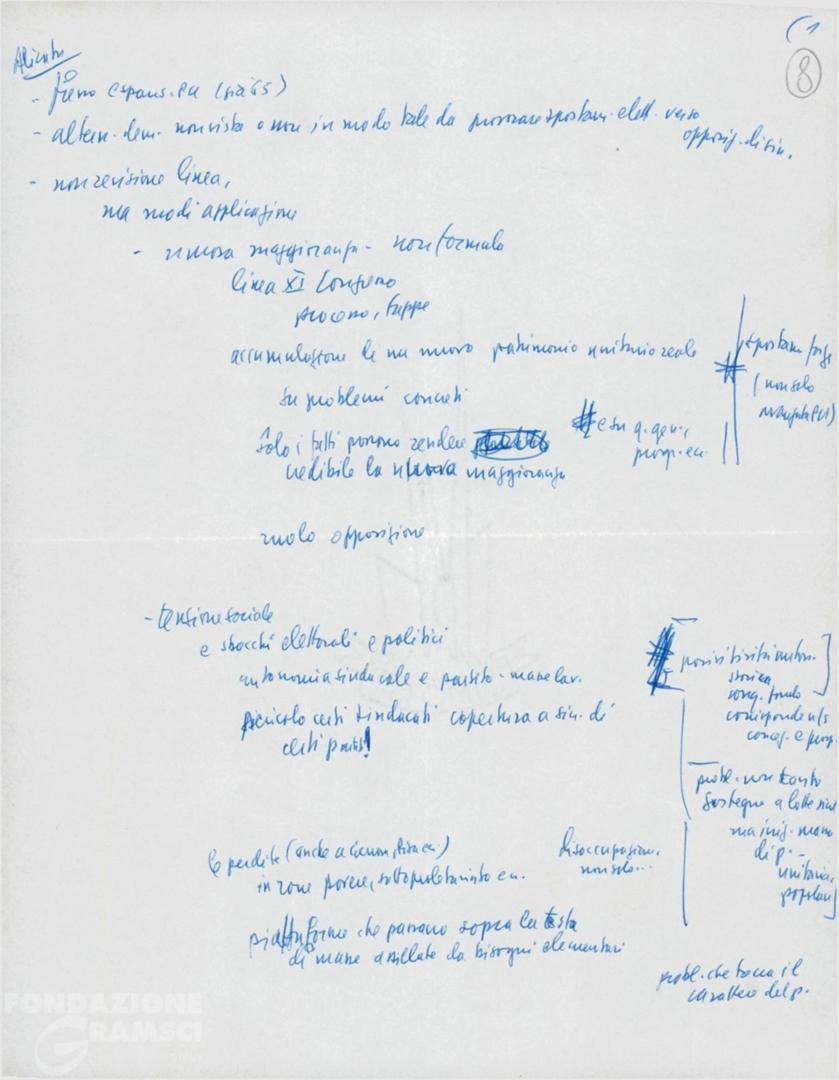 (1
8
Alicata
- freno espans. ecc (già 65)
- altern. dem. non vista o non in modo tale da provocare spostam. elett. verso
opposiz. di sin.
- non revisione linea,
ma modi applicazione
- nuova maggioranza - non formula
linea XI Congresso
processo, tappe
accumulazione di un nuovo patrimonio unitario reale
su problemi concreti
# e su q. gen.,
progr. ecc.
solo i fatti possono rendere
credibile la nuova maggioranza
# spostam. forze
(non solo
avanzata PCI)
ruolo opposizione
- tensione sociale
e sbocchi elettorali e politici
autonomia sindacale e partito - masse lav.
pericolo certi sindacati copertura a sin. di
certi partiti!
# positività auton.
storica
conq. fondo
corrispondente
concez. e prosp.
probl. non tanto
sostegno a lotte sind
ma iniz. mom
di p. -
unitaria,
popolare]
le perdite (anche a Genova, Pisa ecc.)
in zone povere, sottoproletariato ecc.
disoccupazione,
non solo...
piattaforme che passano sopra la testa
di masse assillate da bisogni elementari
probl. che tocca il
carattere del p.
FONDAZIONE
GRAMSCI